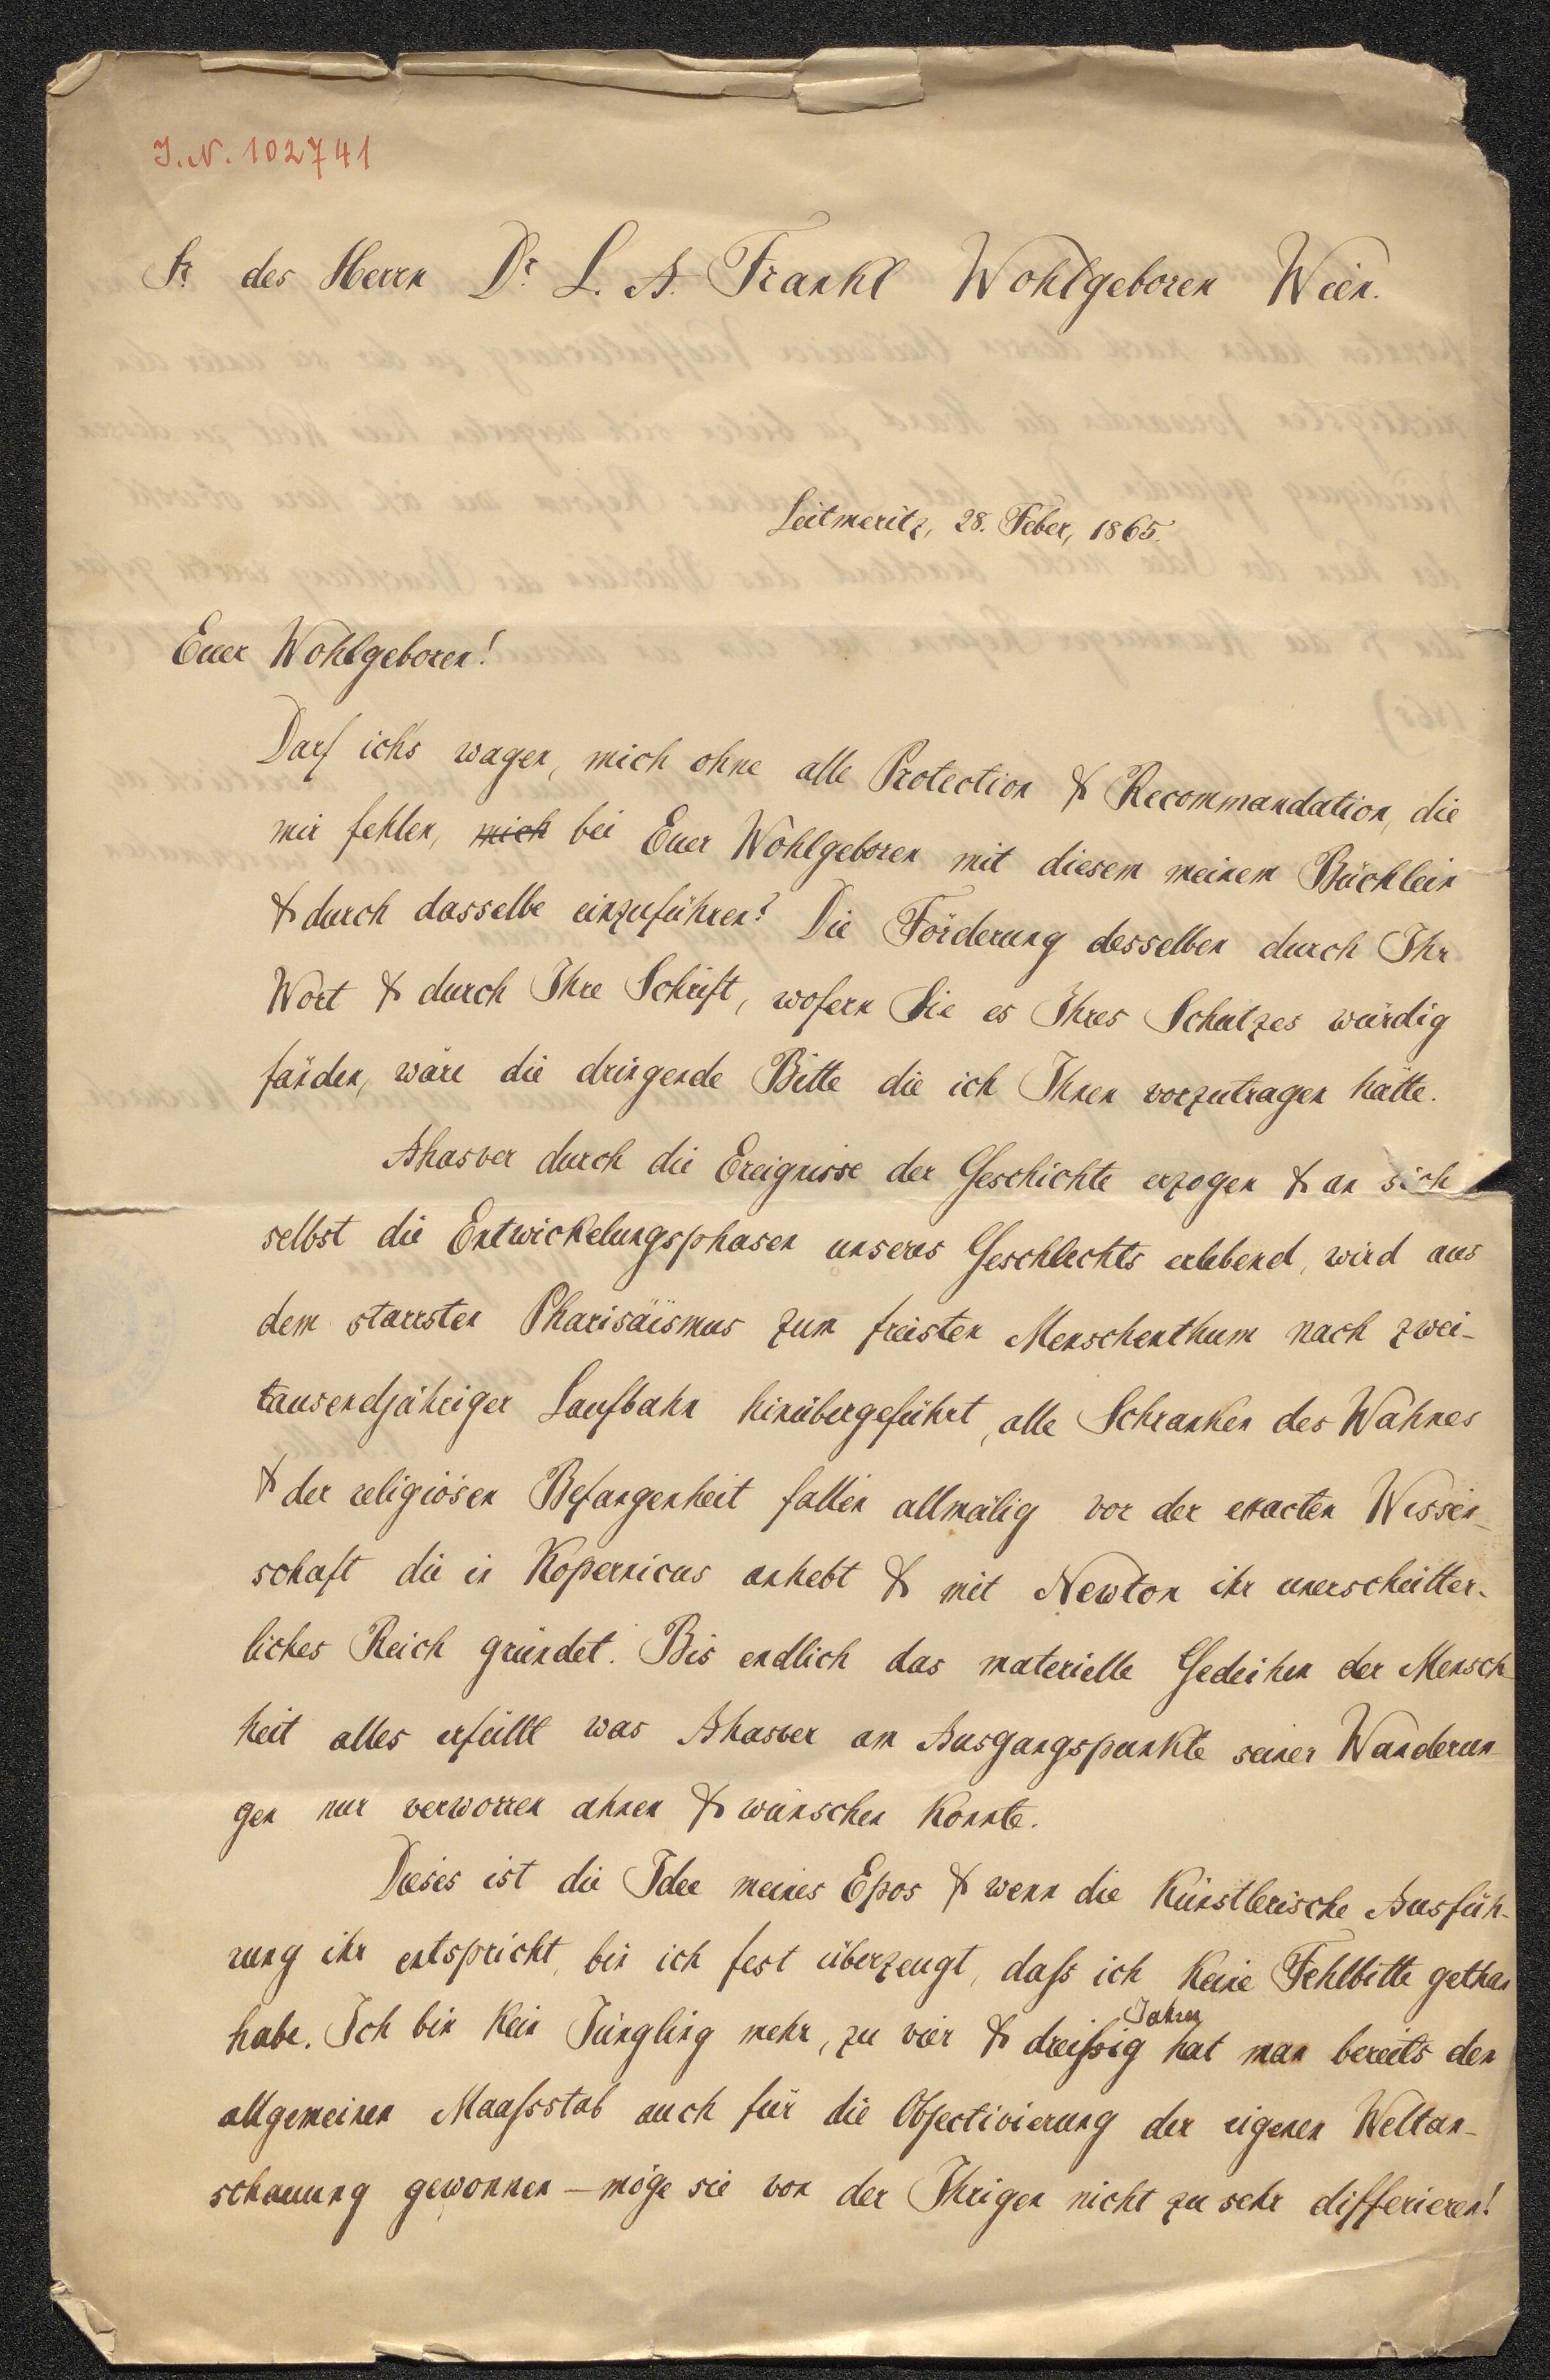 J.N. 102741
Sr des Herrn Dr. L. A. Frankl Wohlgeboren Wien.
Leitmeritz, 28. Feber, 1865.
Euer Wohlgeboren!
Darf ichs wagen, mich ohne alle Protection & Recommandation, die
mir fehlen, mich bei Euer Wohlgeboren mit diesem meinem Büchlein
& durch dasselbe einzuführen? Die Förderung desselben durch Ihr
Wort & durch Ihre Schrift, wofern Sie es Ihres Schutzes würdig
fänden, wäre die dringende Bitte die ich Ihnen vorzutragen hätte.
Ahasver durch die Ereignisse der Geschichte erzogen & an sich
selbst die Entwickelungsphasen unseres Geschlechts erlebend, wird aus
dem starrsten Pharisäismus zum freisten Menschenthum nach zwei-
tausendjähriger Laufbahn hinübergeführt, alle Schranken des Wahnes
& der religiösen Befangenheit fallen allmälig vor der exacten Wissen-
schaft die in Kopernicus anhebt & mit Newton ihr unerschütter-
liches Reich gründet. Bis endlich das materielle Gedeihen der Mensch-
heit alles erfüllt was Ahasver am Ausgangspunkte seiner Wanderun-
gen nur verworren ahnen & wünschen konnte.
Dieses ist die Idee meines Epos & wenn die künstlerische Ausfüh-
rung ihr entspricht, bin ich fest überzeugt, dass ich keine Fehlbitte gethan
habe. Ich bin kein Jüngling mehr, zu vier & dreissig Jahren hat man bereits den
allgemeinen Maassstab auch für die Objectivierung der eigenen Weltan-
schauung gewonnen – möge sie von der Ihrigen nicht zu sehr differieren!